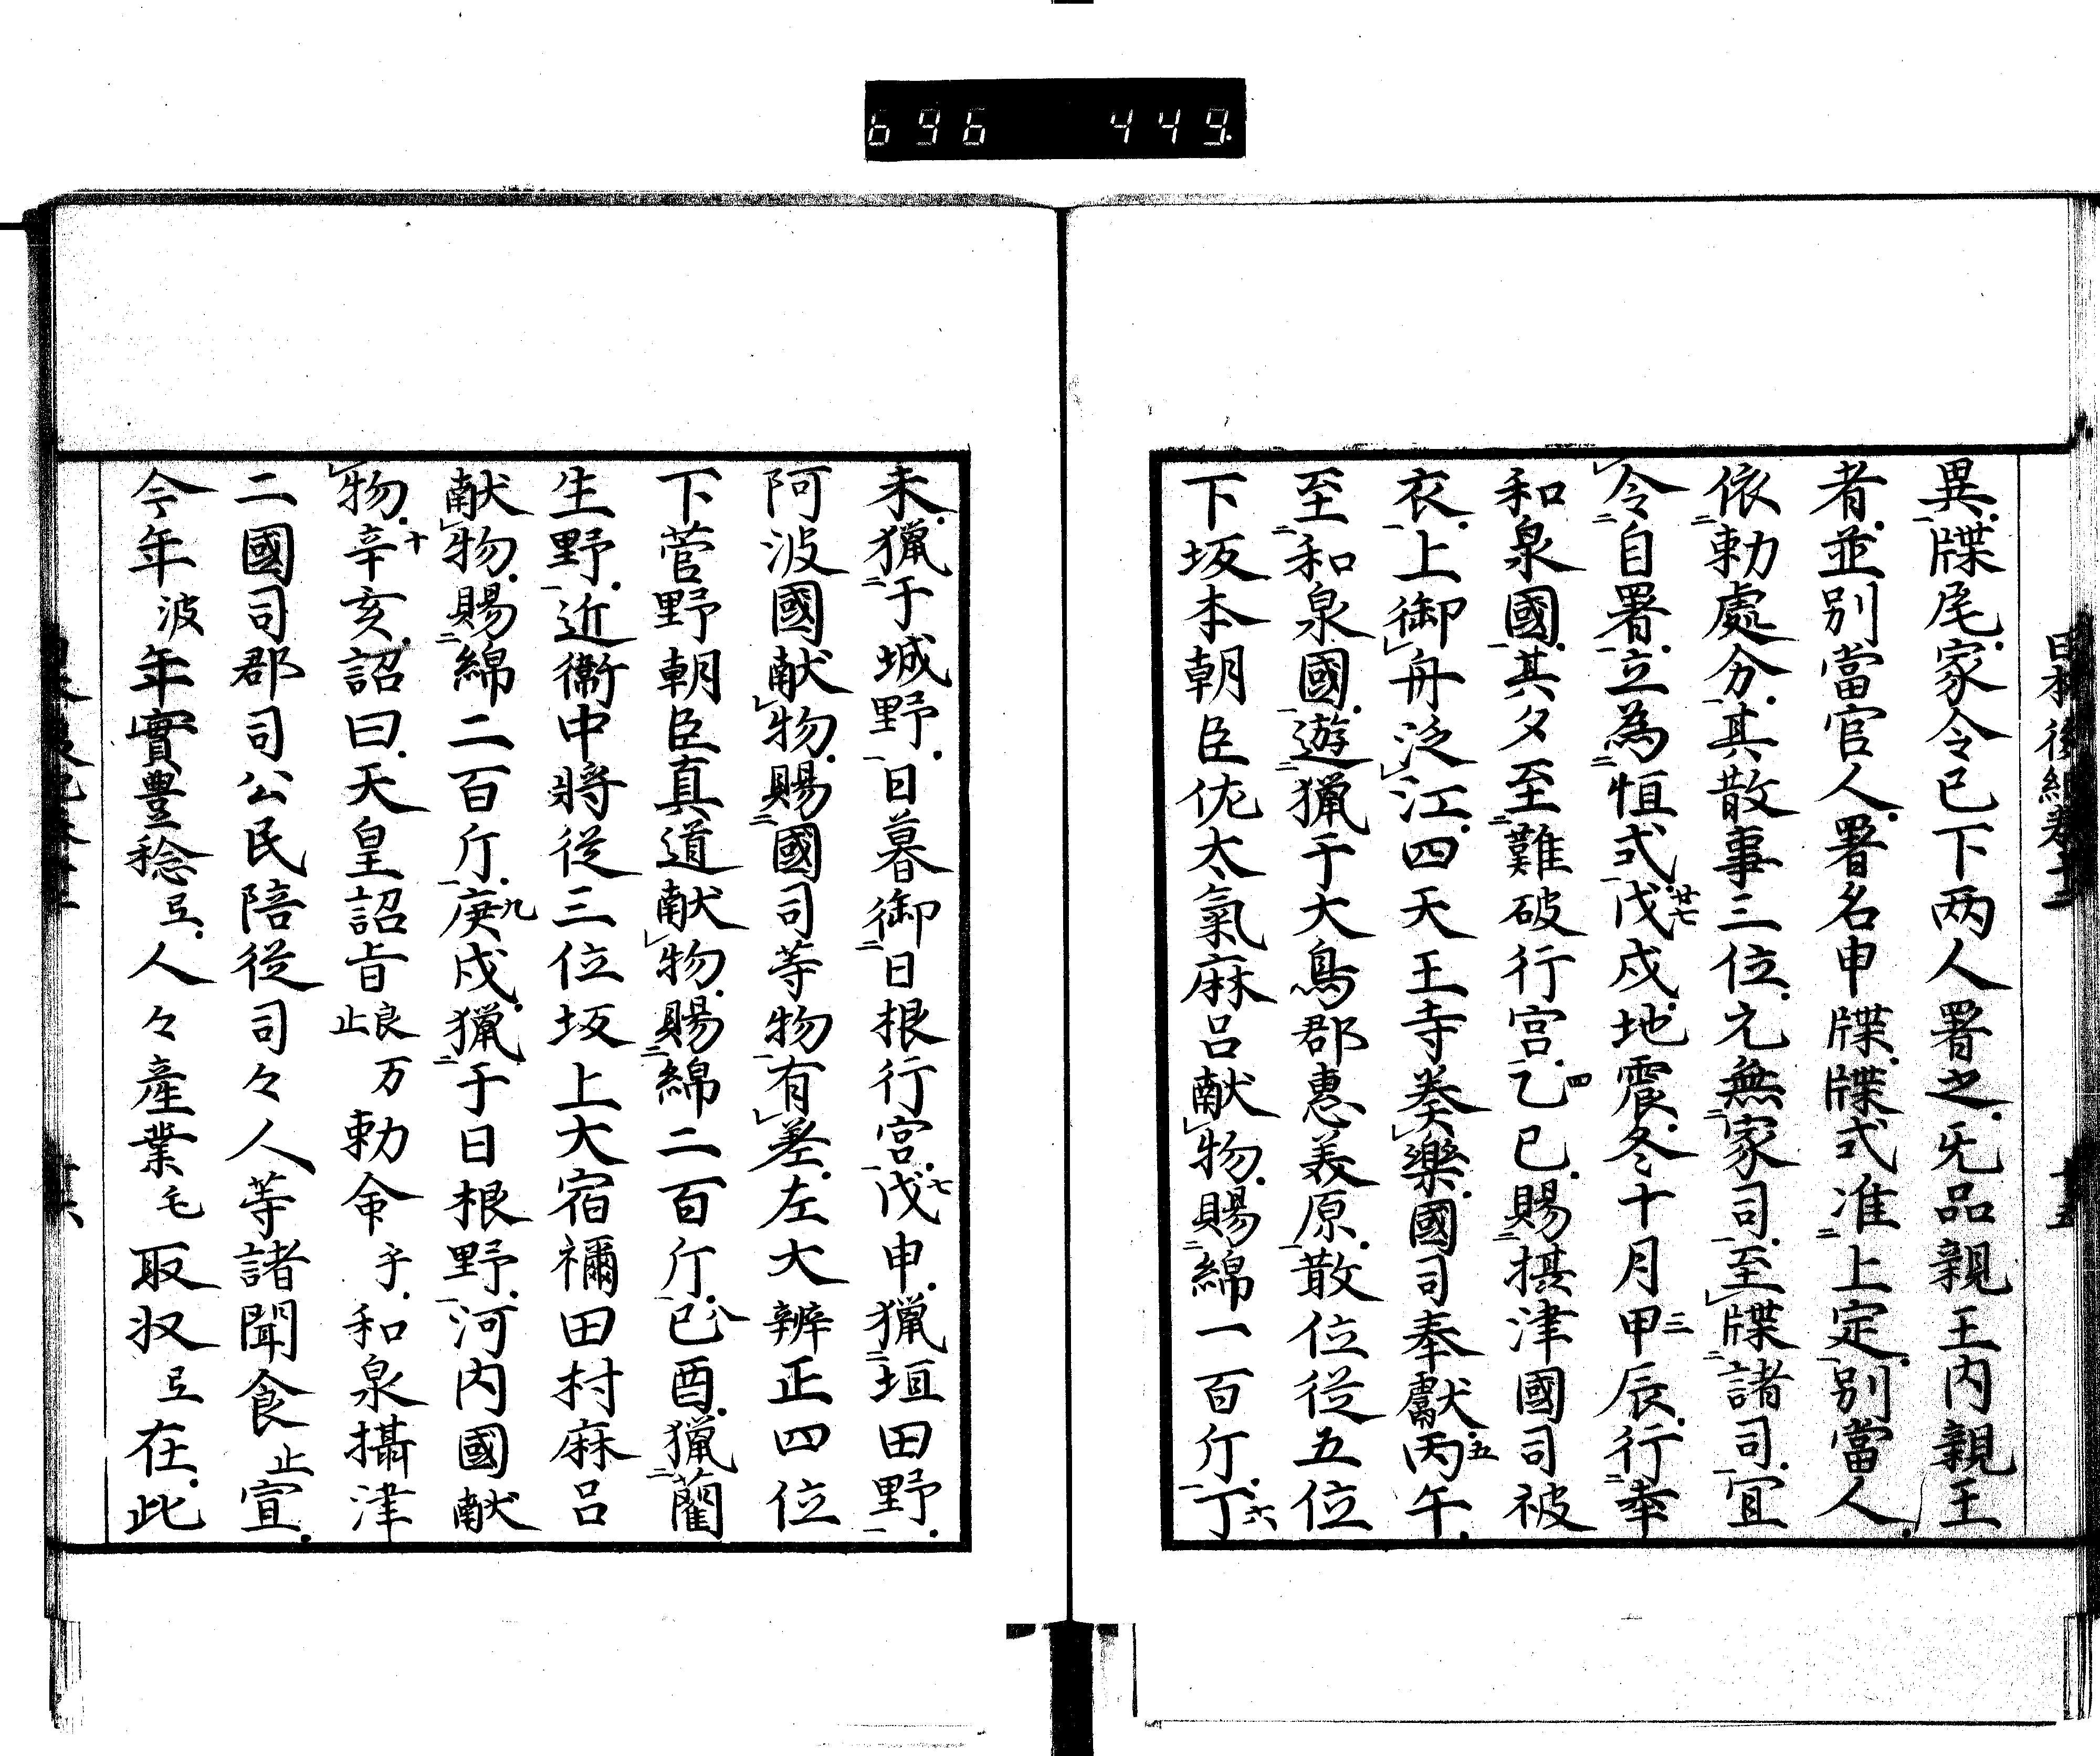 696 449
異牒尾家令已下两人署之无品親王内親王
者並別當官人署名申牒牒式准上定別當人
依勅處分其散事三位元無家司至牒諸司宜
令自署立為恒式戊戌地震冬十月甲辰行幸
廿七
三
和泉國其夕至難破行宮乙巳賜攝津國司被
四
衣上御舟泛江四天王寺奏樂國司奉獻丙午
五
至和泉國遊獵于大鳥郡惠美原散位從五位
下坂本朝臣佐太氣麻呂献物賜綿一百斤丁
六
未獵于城野日暮御日根行宮戊申獵垣田野
七
阿波國献物賜國司等物有差左大辨正四位
下菅野朝臣真道献物賜綿二百斤己酉獵藺
八
生野近衞中將從三位坂上大宿禰田村麻呂
献物賜綿二百斤庚戌獵于日根野河内國献
九
物辛亥詔曰天皇詔旨良万止勅命乎和泉攝津
十
二國司郡司公民陪從司々人等諸聞食止宣
今年波年實豊稔弖人々產業毛取収弖在此